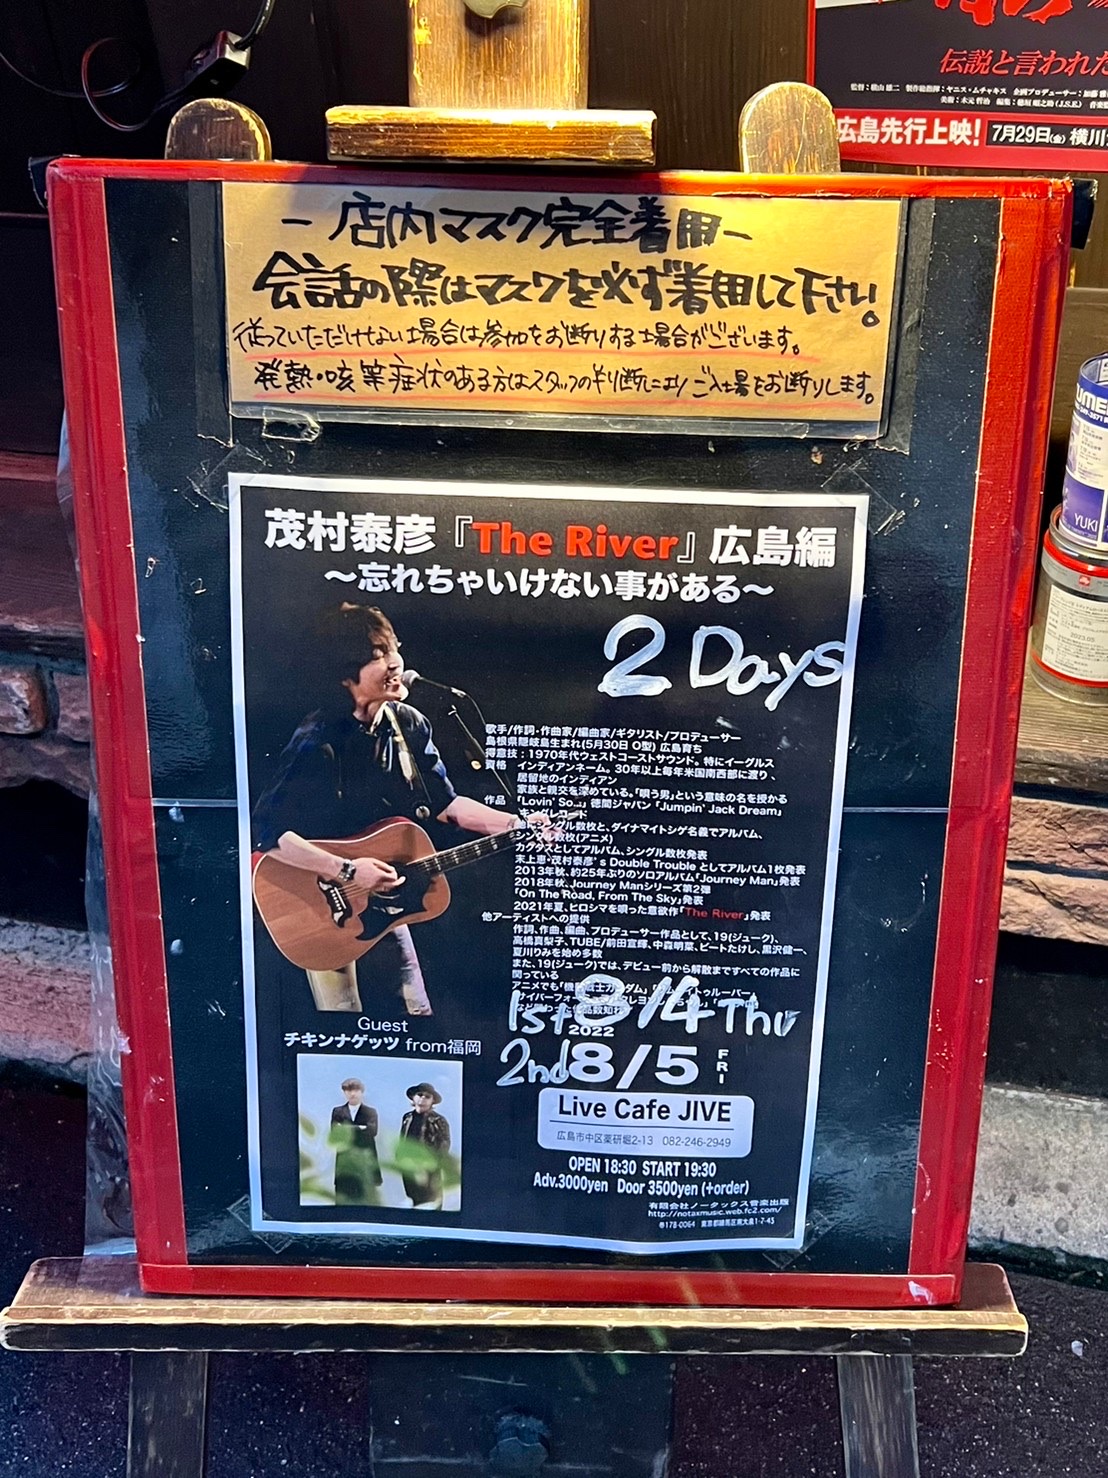 伝説と言われた
広島先行上映! 7月29日(金) 横川
- 店内マスク完全着用 -
会話の際はマスクを必ず着用して下さい。
従っていただけない場合は参加をお断りする場合がございます。
発熱・咳等症状のある方はスタッフの判断によりご入場をお断りします。
茂村泰彦『The River』広島編
〜忘れちゃいけない事がある〜
2 Days
歌手/作詞・作曲家/編曲家/ギタリスト/プロデューサー
島根県隠岐島生まれ(5月30日 O型) 広島育ち
得意技：1970年代ウェストコーストサウンド。特にイーグルス
資格 インディアンネーム。30年以上毎年米国南西部に渡り、
居留地のインディアン
家族と親交を深めている。「唄う男」という意味の名を授かる
作品 「Lovin' So...」徳間ジャパン「Jumpin' Jack Dream」
キングレコード
シングル数枚と、ダイナマイトシゲ名義でアルバム、
シングル数枚(アニメ)
カクタスとしてアルバム、シングル数枚発表
末上恵・茂村泰彦's Double Trouble としてアルバム1枚発表
2013年秋、約25年ぶりのソロアルバム「Journey Man」発表
2018年秋、Journey Manシリーズ第2弾
「On The Road, From The Sky」発表
2021年夏、ヒロシマを唄った意欲作「The River」発表
他アーティストへの提供
作詞、作曲、編曲、プロデューサー作品として、19(ジューク)、
高橋真梨子、TUBE/前田亘輝、中森明菜、ビートたけし、黒沢健一、
夏川りみを始め多数
また、19(ジューク)では、デビュー前から解散まですべての作品に
関っている
アニメでも「機動戦士ガンダム」
1st 8/4 Thu
2022
2nd 8/5 FRI
Guest
チキンナゲッツ from福岡
Live Cafe JIVE
広島市中区薬研堀2-13 082-246-2949
OPEN 18:30 START 19:30
Adv.3000yen Door 3500yen (+order)
有限会社ノータックス音楽出版
http://notaxmusic.web.fc2.com/
〒178-0064 東京都練馬区南大泉1-7-43
UME
YUKI
2023.05